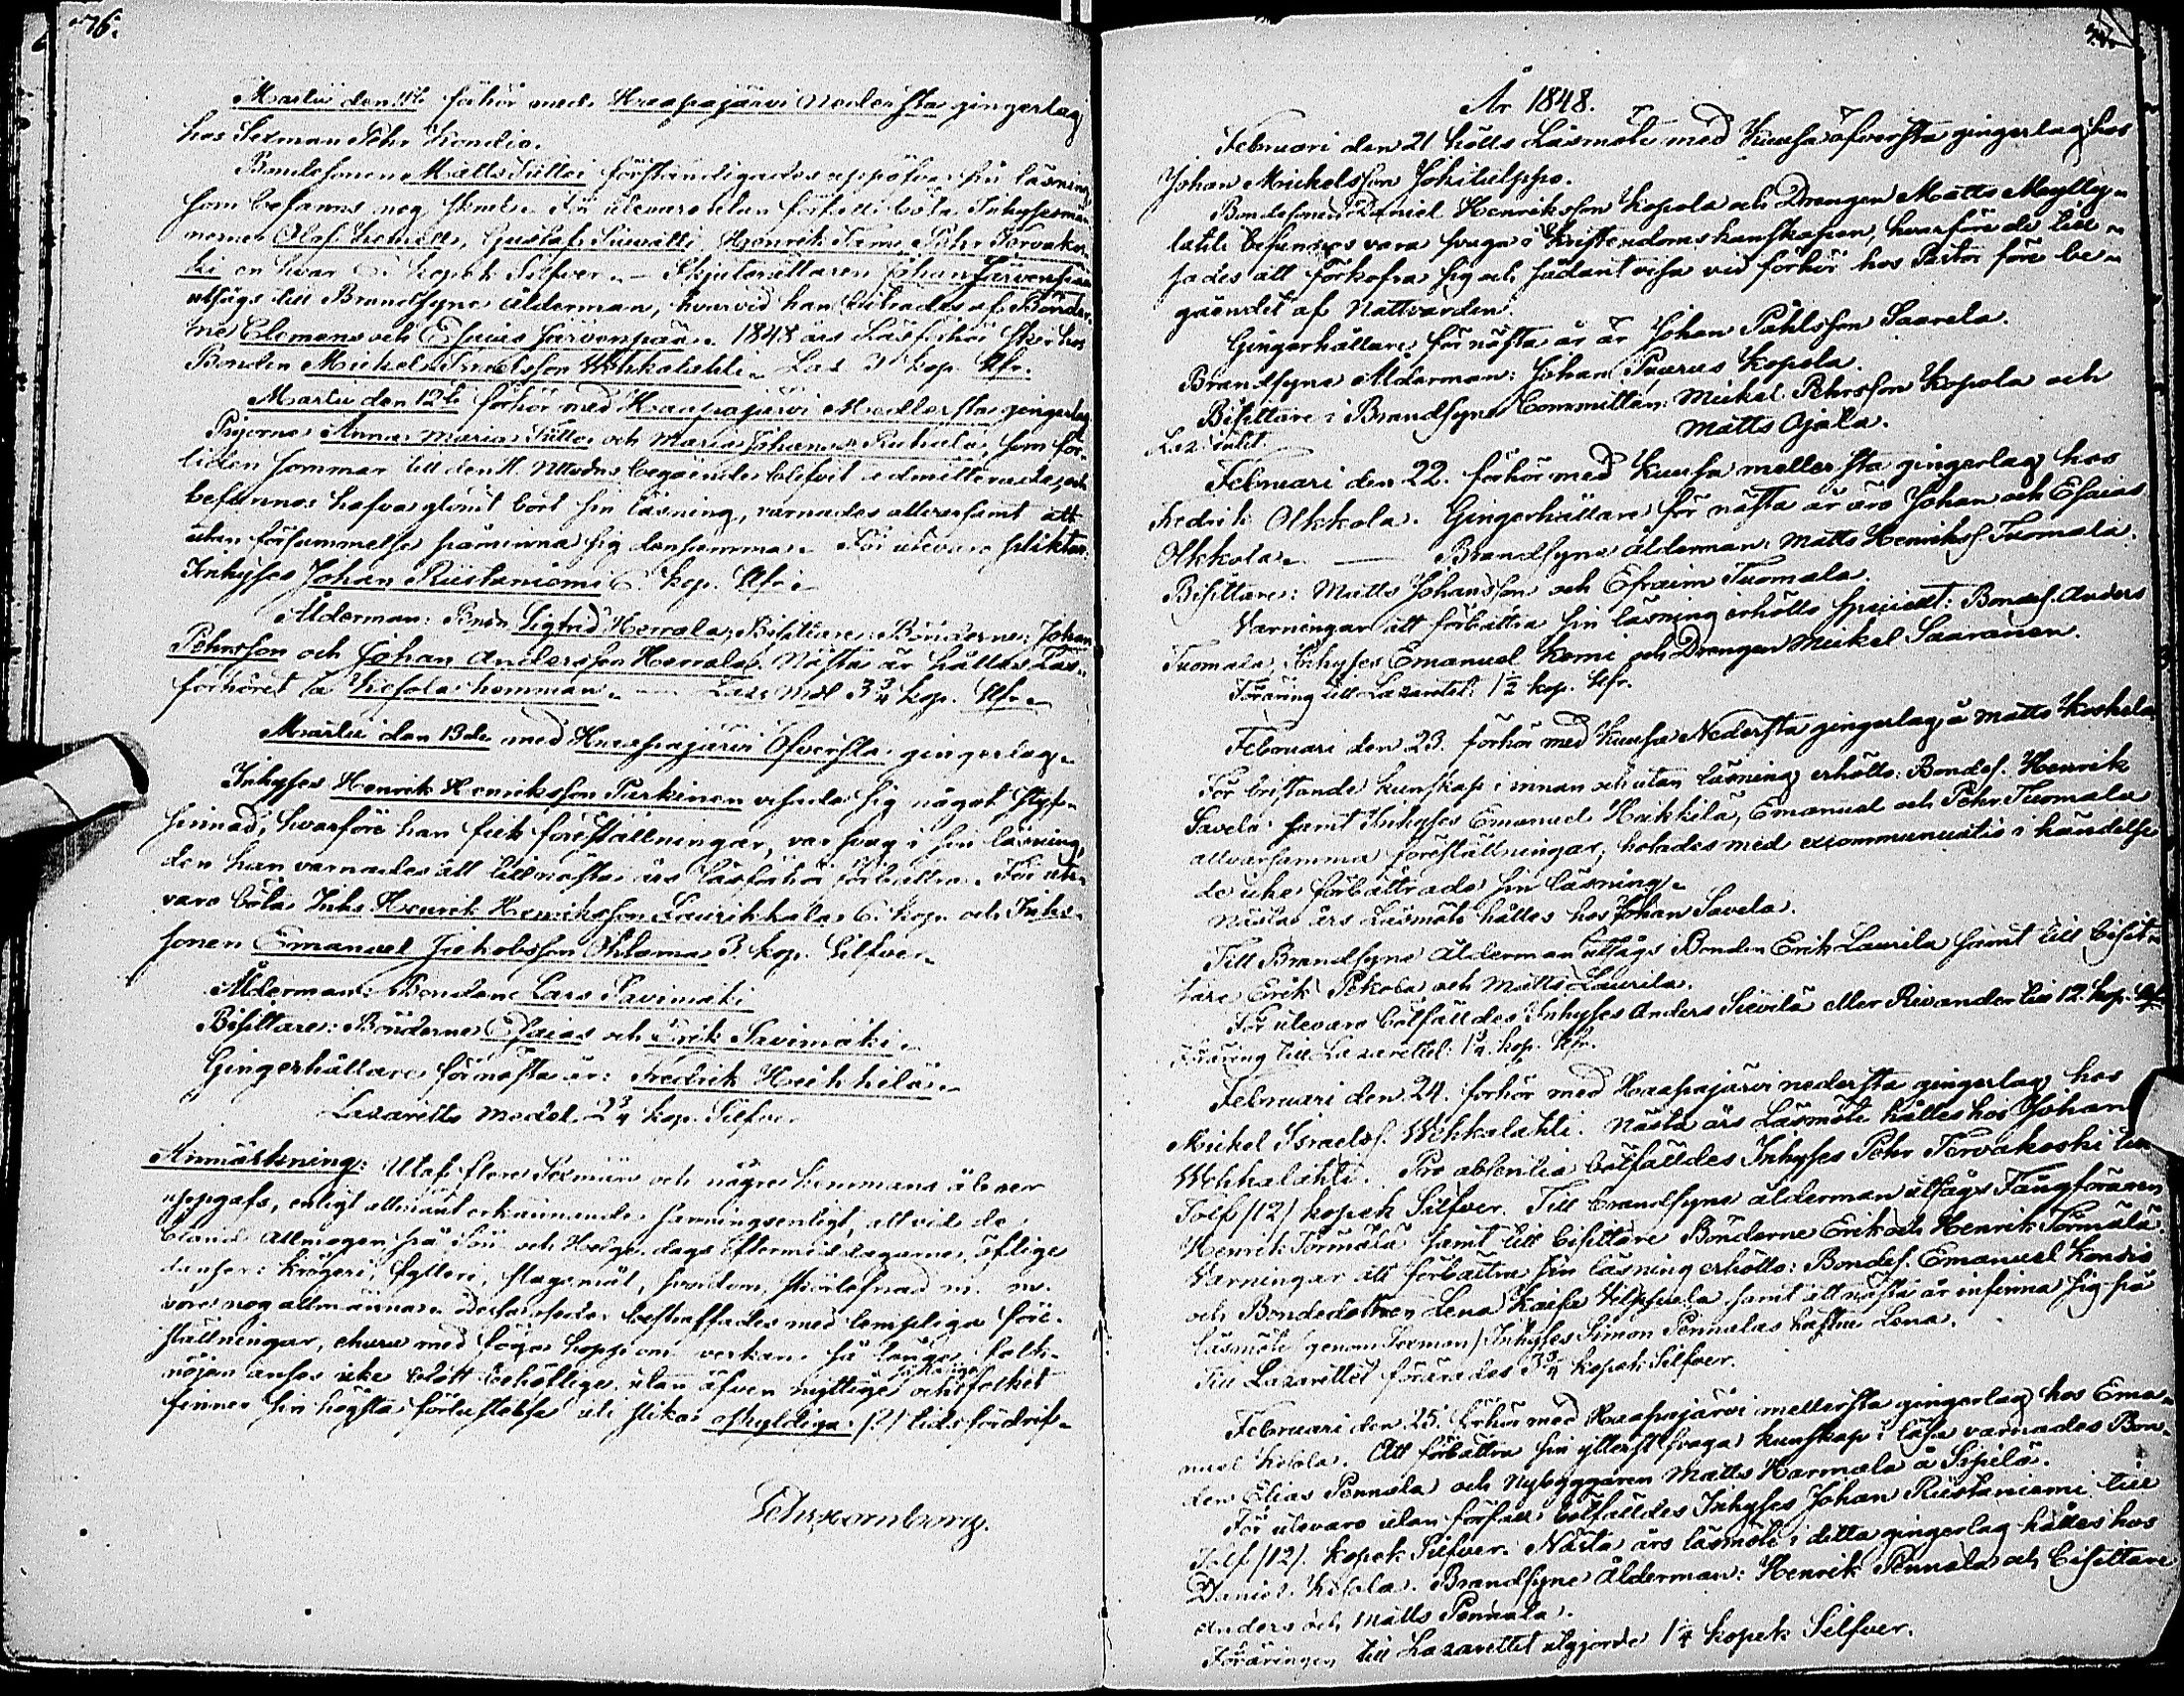 76.
Martii den 11te förhör med Haapajärvi Nedersta gingerlag
hos Sexman Pehr Kondio.
Bondesonen Matts Tuttoi förständigades uppöfva sin läsning
som befanns nog slem. För utevaro utan förfall böta Inhysesmän
nerne Olof Kemell, Gustaf Siiwatti, Henrik Fame, Pehr Tervakos-
ki en hvar 6 kopek Silfver. — Skjutsrättaren Johan Järvenpää
utsågs till Brandsyns ålderman, hvarvid han biträdes af Bönder-
ne Clemens och Esaias Järvenpää. 1848 års Läsförhör sker hos
Bonden Mickel Israelsson Wehkalahti. Laz. 3 kop. Sfr.
Martii den 12te förhör med Haapajärvi Medlersta gingerlag
Pigorna Anna Maria Tutto och Maria Johanna Ruhala, som för-
liden sommar till den H. Nttvdns begående blifvit admitterade, och
befunnos hafva glömt bort sin läsning, varnades allvarsamt att
utan försummelse påminna sig densamma. För utevaro pliktar
Inhyses Johan Riistaniemi 6. kop. Sfr.
Ålderman: Bndn Sigfrid Herrala, Bisittare: Bönderne: Johan
Pehrsson och Johan Andersson Herrala. Nästa år hålles Läs-
förhöret å Kesola hemman. — Laz: Mdl 3¾ kop. Sfr.
Martii den 13de med Haapajärvi Öfversta gingerlag.
Inhyses Henrik Henriksson Parkinen visade sig något styf-
sinnad, hvarföre han fick föreställningar, var svag i sin läsning,
den han varnades att till nästa års läsförhör förbättra. För ute-
varo böta Inhs Henrik Henriksson Laurikkala 6. kop. och Inhs-
sonen Emanuel Jakobsson Ohlama 3 kop. Silfver.
Ålderman: Bonden Lars Savimäki
Bisittare: Bönderne Esaias och Erik Savimäki.
Gingerhållare för nästa år: Fredrik Heikkilä.
Lazaretts medel 2¾ kop. Silfver
Anmärkning: Utaf flere Sexmän och några hemmans åboer
uppgafs, enligt allmänt erkännande sanningsenligt, att vid de
bland Allmogen på Sön- och Helge-dags eftermiddagarne öflige
danser: krögeri, fylleri, slagsmål, svordom, skörlefnad m. m.
vore nog allmänna. Dessa oseder bestraffades med lämpliga före-
ställningar, ehuru med föga hopp om verkan så länge folk-
nöjen anses icke blott behöflige utan äfven nyttige och folket
finner sin högsta förlustelse uti slika oskyldiga (?) tidsfördrif.
År 1848.
Februari den 21 hölls Läsmöte med Kuusa öfversta gingerlag hos
Johan Mickelsson Jokitulppo.
Bondesonen Daniel Henriksson Kopola och Drengen Matts Mylly-
lahti befunnos vara svaga i Kristendomskunskapen, hvarföre de till-
sades att förkofra sig och sådant visa vid förhör hos Pastor före be-
gåendet af Nattvarden.
Gingerhållare för nästa år är Johan Påhlsson Saarela.
Brandsyns Ålderman: Johan Puurus Kopola.
Bisittare i Brandsyns Committén: Mickel Pehrsson Kopola och
Matts Ojala.
Februari den 22. förhör med Kuusa mellersta gingerlag hos
Fredrik Olkkola. Gingerhållare för nästa år äro Johan och Esaias
Olkkola. — Brandsyns ålderman: Matts Henrikss. Tuomala.
Bisittare: Matts Johansson och Efraim Tuomala.
Varningar att förbättra sin läsning erhöllo speciellt: Bondes. Anders
Tuomala, Inhyses Emanuel Kemi och Drengen Mickel Saaranen.
Föräring till Lazarettet: 1½ kop. Sfr.
Februari den 23. förhör med Kuusa Nedersta gingerlag å Matts Koskela
För bristande kunskap i innan och utan läsning erhöllo: Bondes. Henrik
Savela samt Inhyses Emanuel Heikkilä, Emanuel och Pehr Tuomala
allvarsamma föreställningar, hotades med excommunicatio i händelse
de icke förbättrade sin läsning.
Nästa års Läsmöte hålles hos Johan Savela.
Till Brandsyns Ålderman utsågs Bonden Erik Laurila samt till bisit-
tare Erik Pekola och Matts Laurila.
För utevaro bötfälldes Inhyses Anders Siivilä eller Rivander till 12. kop. Sfr.
Föräring till Lazarettet: 1¼ kop. Sfr.
Februari den 24. förhör med Haapajärvi nedersta gingerlag hos
Mickel Israelss. Wehkalahti. Nästa års Läsmöte hålles hos Johan
Wehkalahti. Pro absentia bötfälldes Inhyses Pehr Tervakoski till
Tolf (12) kopek Silfver. Till brandsyns ålderman utsågs Tångföraren
Henrik Törmälä samt till bisittare Bönderne Erik och Henrik Törmälä
Varningar att förbättra sin läsning erhöllo: Bondes. Emanuel Kondio
och Bondedottren Lena Kaisa Vilppula samt att nästa år infinna sig på
läsmöte genom Sexman, Inhyses Simon Pennalas hustru Lena.
Till Lazarettet förärades 3¾ kopek Silfver.
Februari den 25. förhör med Haapajärvi mellersta gingerlag hos Ema-
nuel Kesola. Att förbättra sin ytterst svaga kunskap i läsa varnades Bon-
den Elias Pennala och Nybyggaren Matts Harmala å Sipilä.
För utevaro utan förfall bötfälldes Inhyses Johan Riistaniemi till
Tolf (12). kopek Silfver. Nästa års läsmöte i detta gingerlag hålles hos
Daniel Kesola. Brandsyns Ålderman: Henrik Pennala och bisittare
Anders och Matts Pennala.
Föräringen till Lazarettet utgjorde 1¼ kopek Silfver.